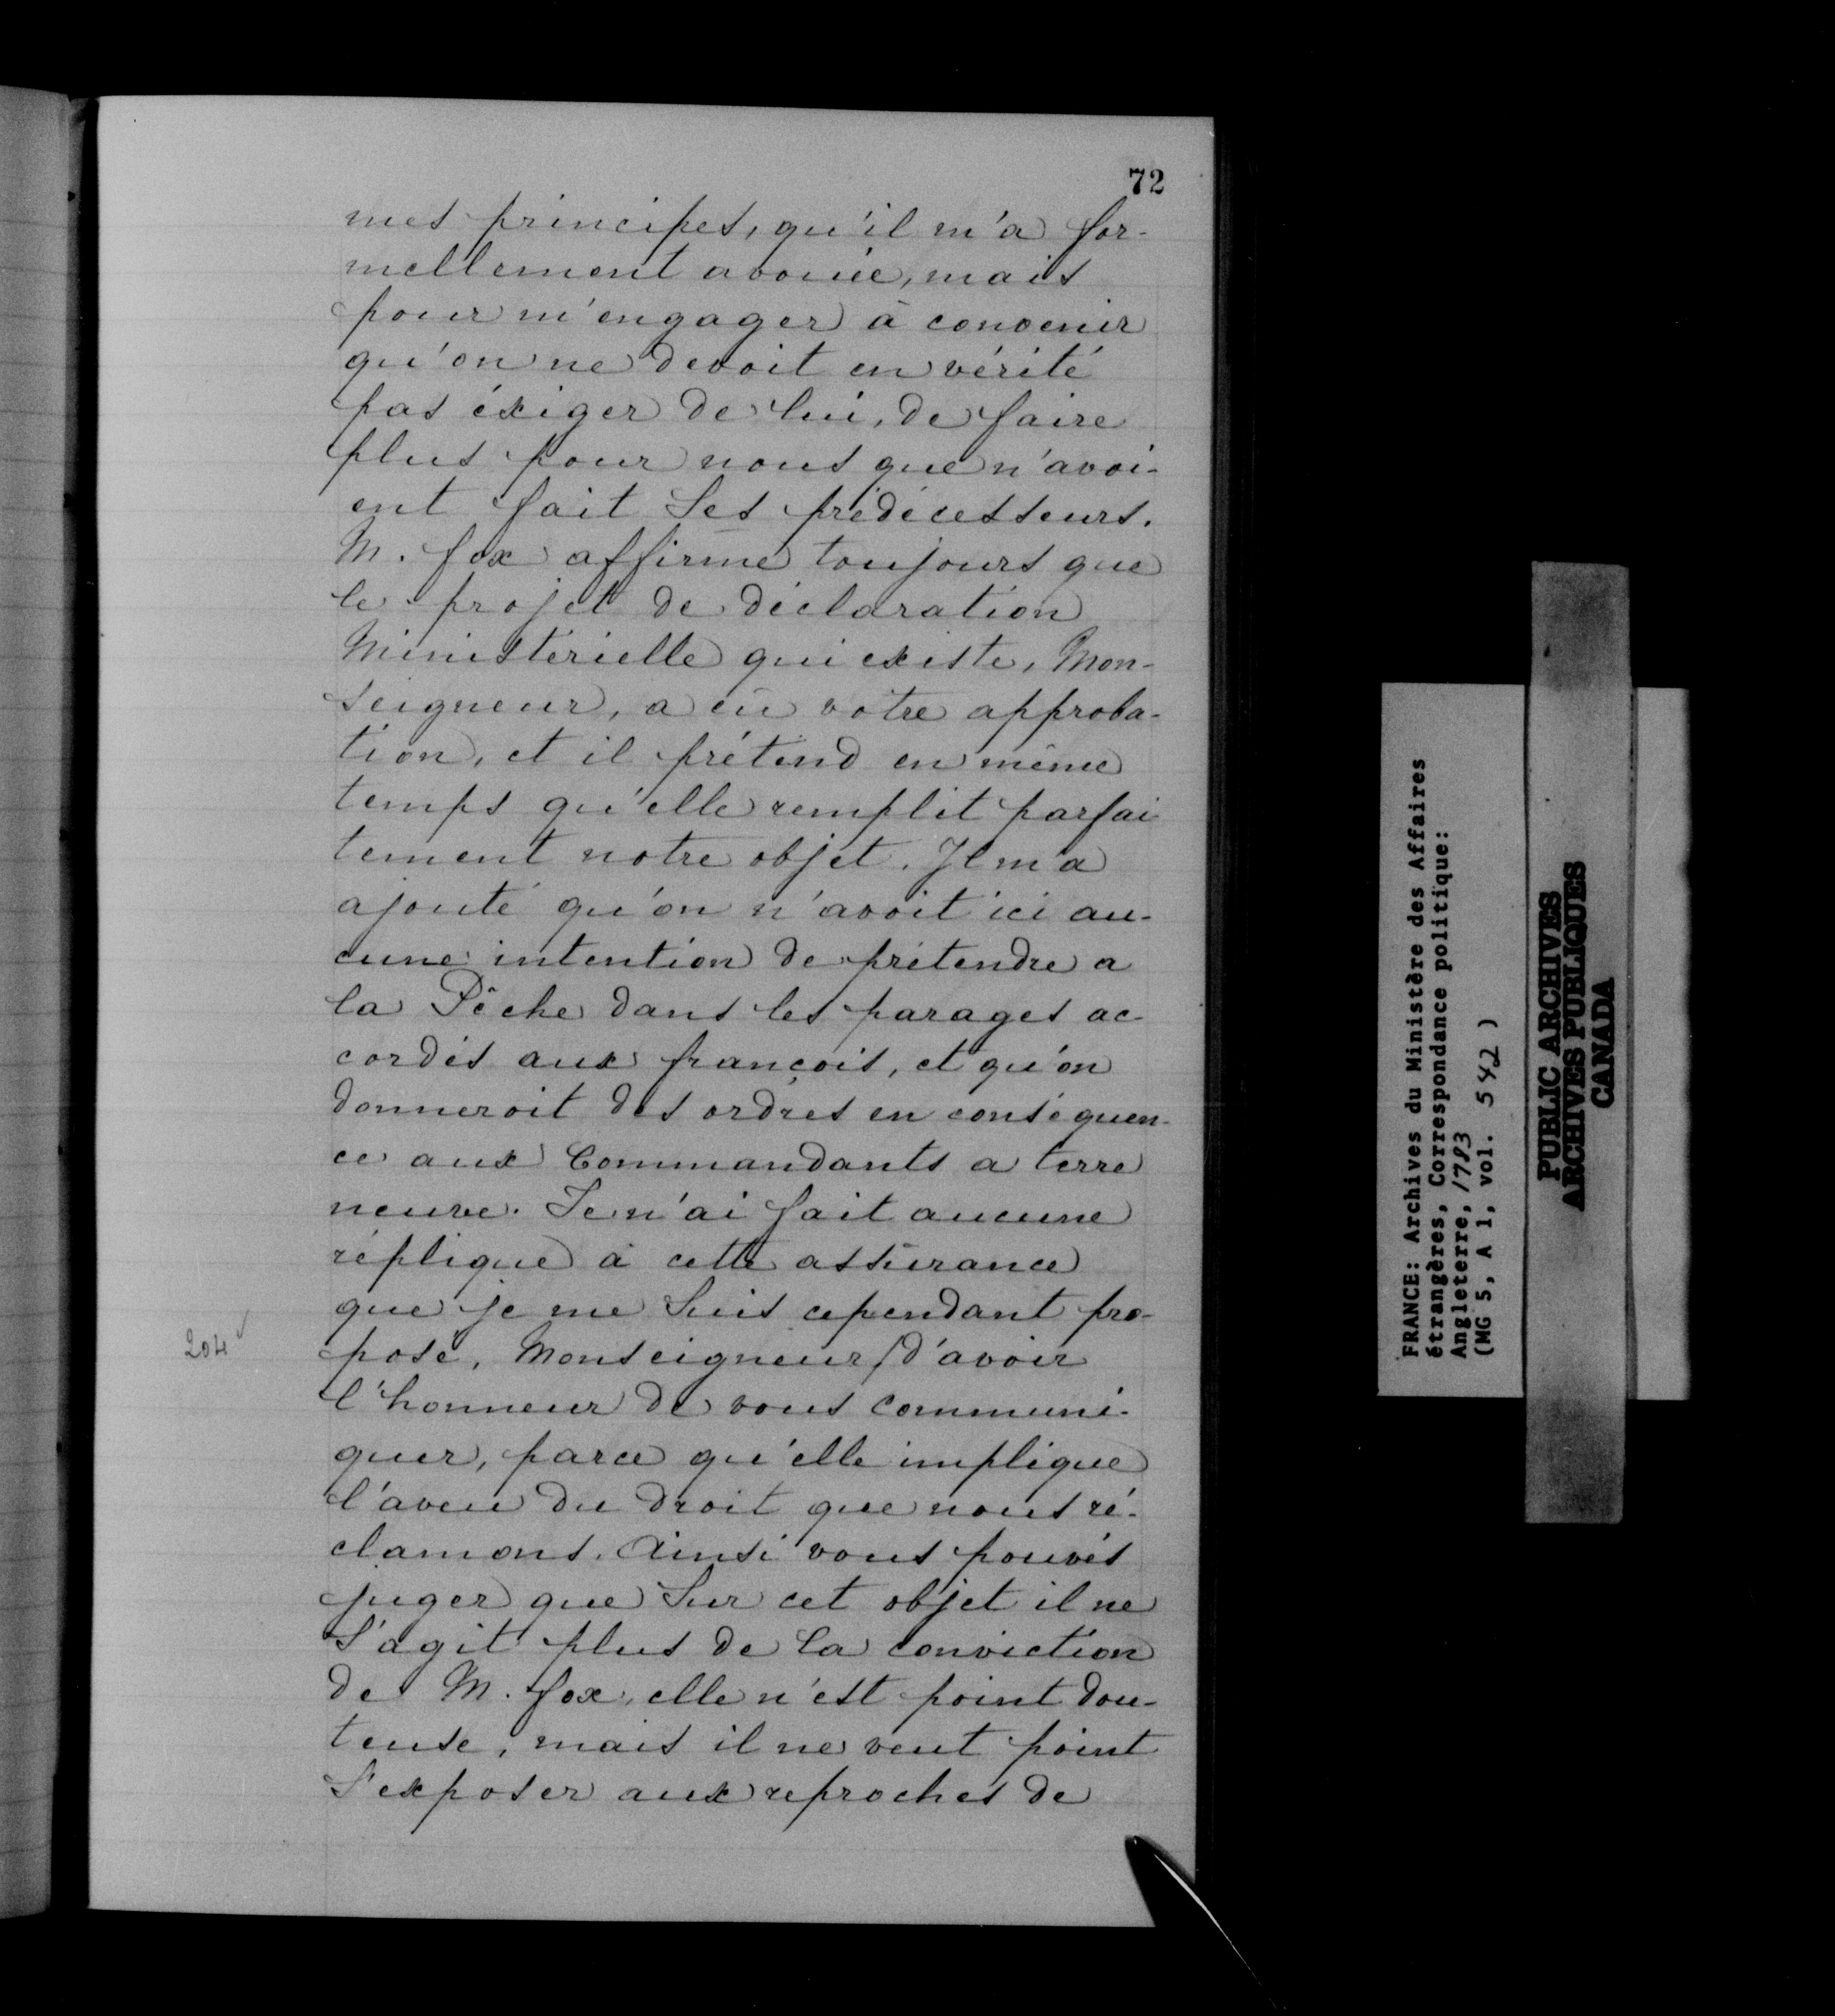 72
mes principes, qu'il m'a for-
mellement avouée, mais
pour m'engager à convenir
qu'on ne devoit en vérité
pas éxiger de lui, de faire
plus pour nous que n'avoi-
ent fait Ses prédécesseurs.
M. fox affirme toujours que
le projet de déclaration
Ministérielle qui existe, Mon-
seigneur, a eû votre approba-
tion, et il prétend en même
temps qu'elle remplit parfai
tement notre objet. Il m'a
ajouté qu'on n'avoit ici au-
cune intention de prétendre a
la Pêche dans les parages ac-
cordés aux françois, et qu'on
donneroit des ordres en conséquen-
ce aux Commandants a terre
neuve. Je n'ai fait aucune
réplique à cette assurance
que je me Suis cependant pro-
posé, Monseigneur, / d'avoir
204
l'honneur de vous communi-
quer, parce qu'elle implique
l'aveu du droit que nous ré-
clamons. Ainsi vous pouvés
juger que Sur cet objet il ne
S'agit plus de la conviction
de M. fox, elle n'est point dou-
teuse, mais il ne veut point
S'exposer aux reproches de
FRANCE: Archives du Ministère des Affaires
étrangères, Correspondance politique:
Angleterre, 1783
(MG 5, A 1, vol. 542 )
PUBLIC ARCHIVES
ARCHIVES PUBLIQUES
CANADA